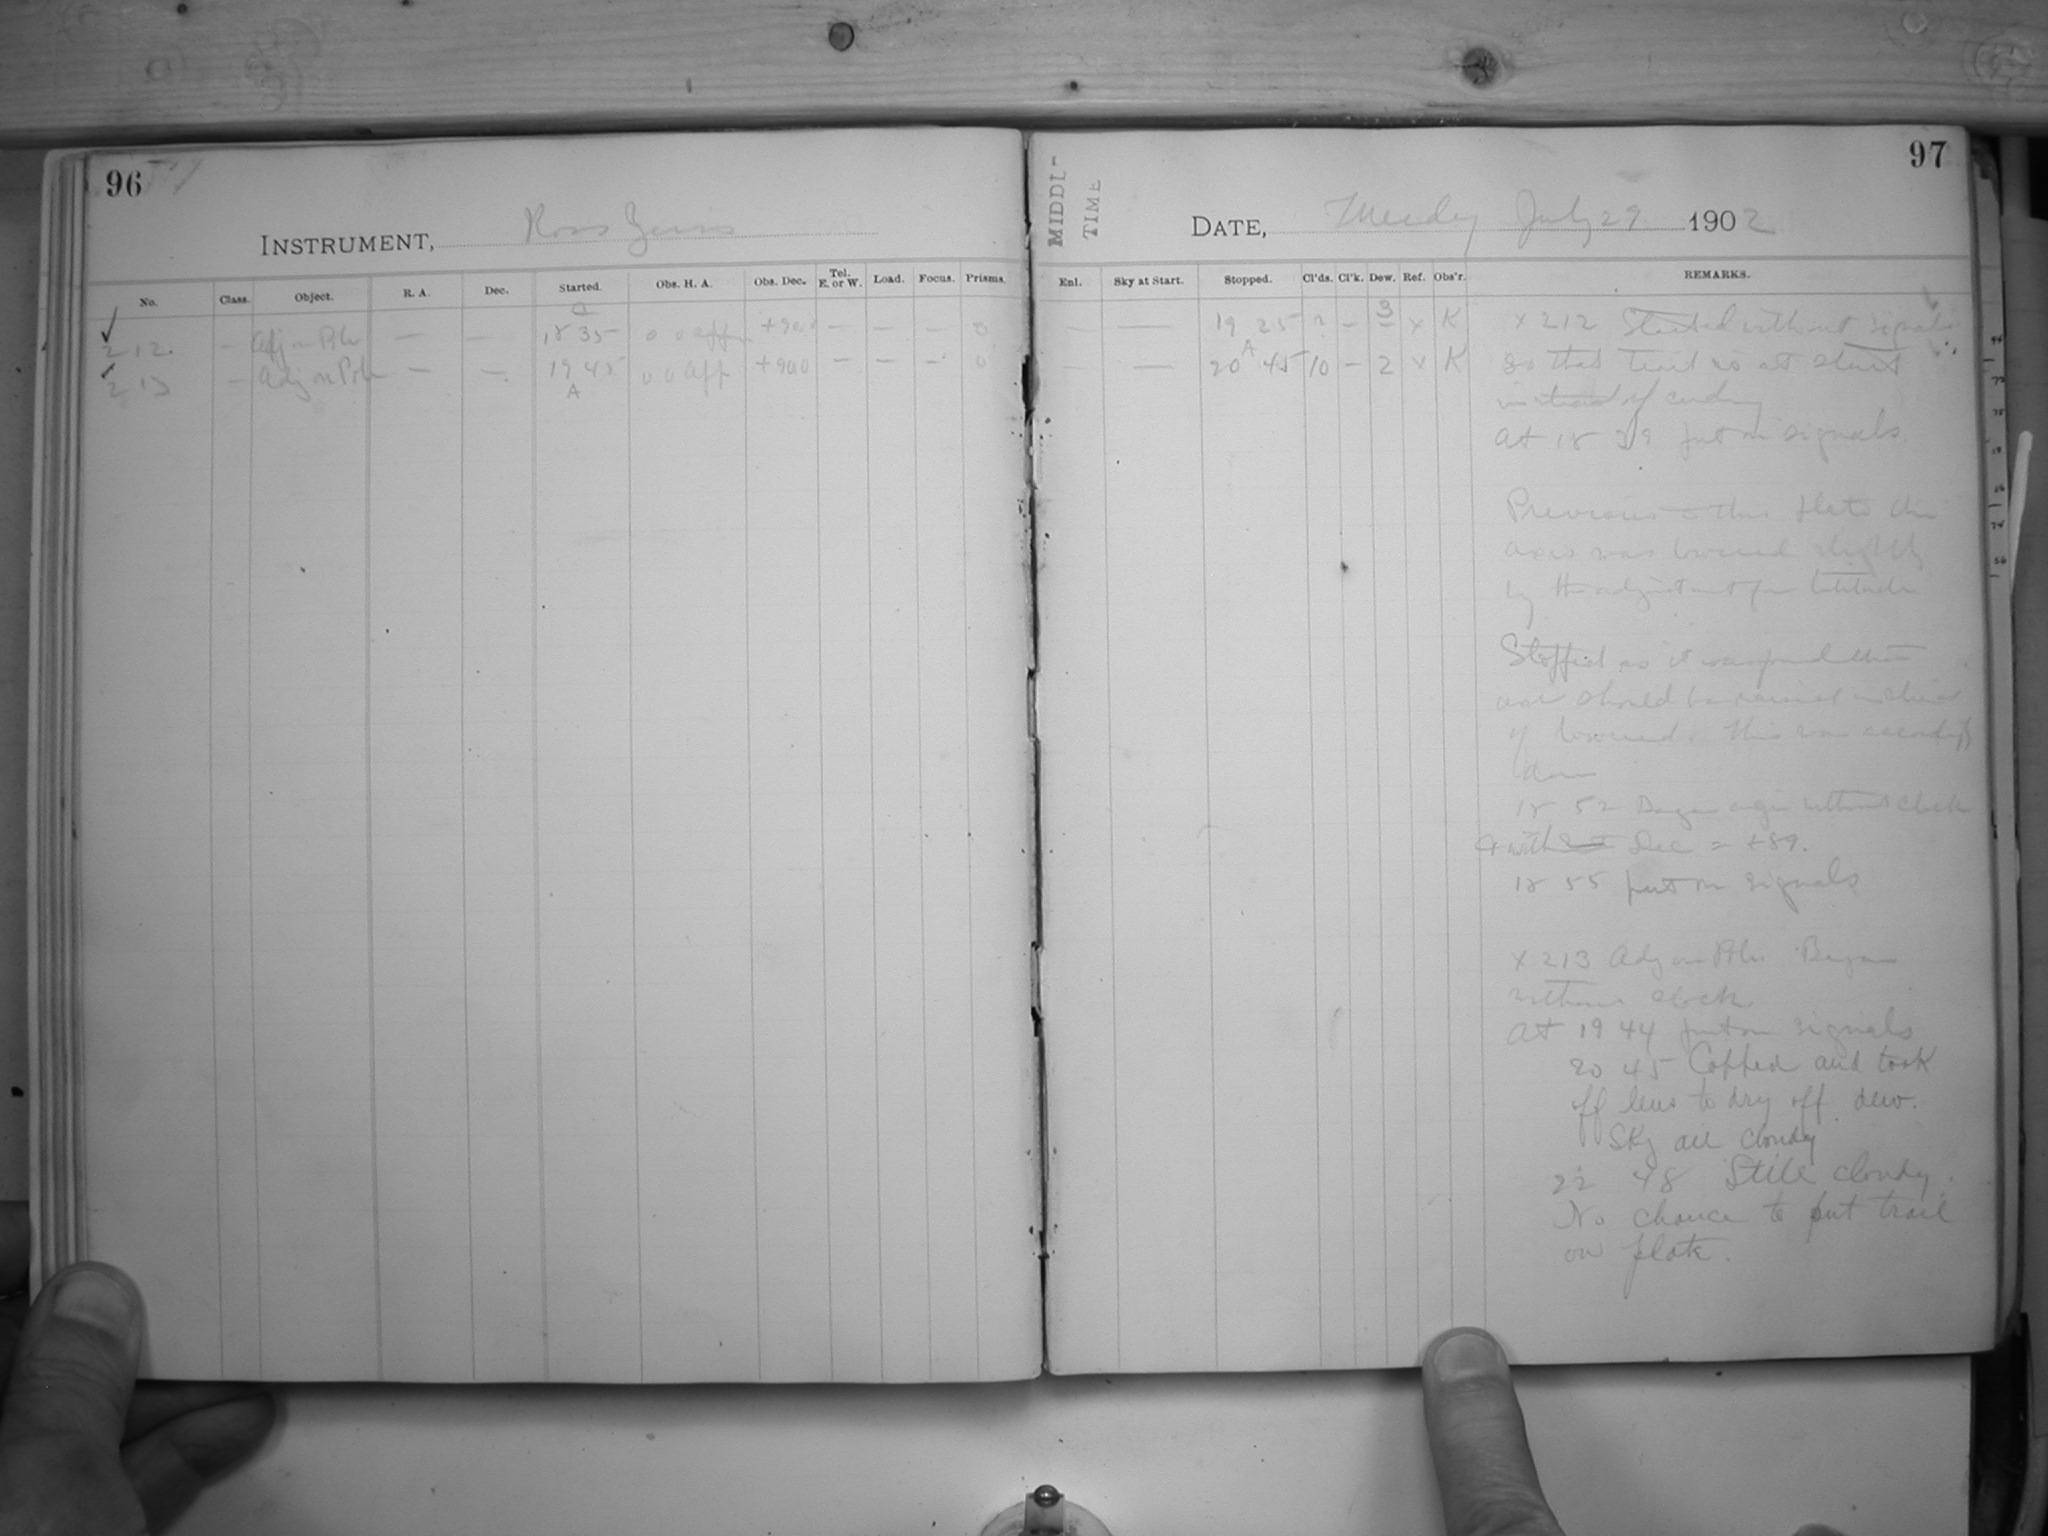 96
INSTRUMENT, Ross Zeiss
No. Class. Object. R. A. Dec. Started. Obs. H. A. Obs. Dec. Tel. E. or W. Load. Focus. Prisms.
212. — Adj on Pole — — 18 35 0 0 app +90.0 — — — 0
213 — Adj on Pole — — 19 45 0 0 app +90.0 — — — 0
A
MIDDL-
TIME
97
DATE, Tuesday July 29 1902
Enl. Sky at Start. Stopped. Cl'ds. Cl'k. Dew. Ref. Obs'r. REMARKS.
— — 19 25 — 3 x K
— — 20 45 10 — 2 x K
A
X 212 Started without signals
so that trail is at start
instead of ending
At 18 39 put on signals
Previous to this plate the
axis was lowered slightly
by the adjustment for latitude
Stopped as it was found that
axis should be raised instead
of lowered. This was accordingly
done
18 52 Began again without clock
& with Dec = +89.
18 55 put on signals
X 213 Adj on Pole. Began
without clock.
At 19 44 put on signals
20 45 Capped and took
off lens to dry off dew.
Sky all cloudy
22 48 Still cloudy.
No chance to put trail
on plate.